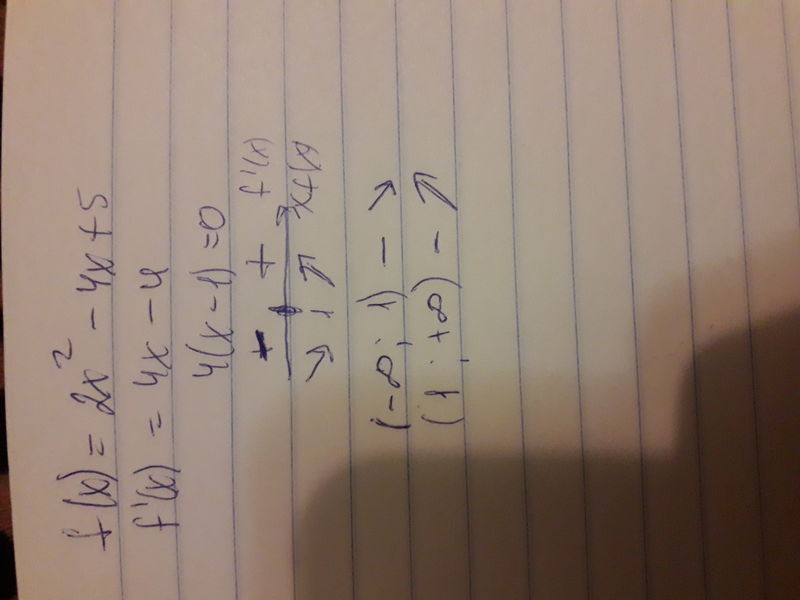 f(x) = 2x² - 4x + 5
f'(x) = 4x - 4
4(x-1) = 0
- + f'(x)
↘ 1 ↗ x f(x)
(-∞; 1) - ↘
(1; +∞) - ↗